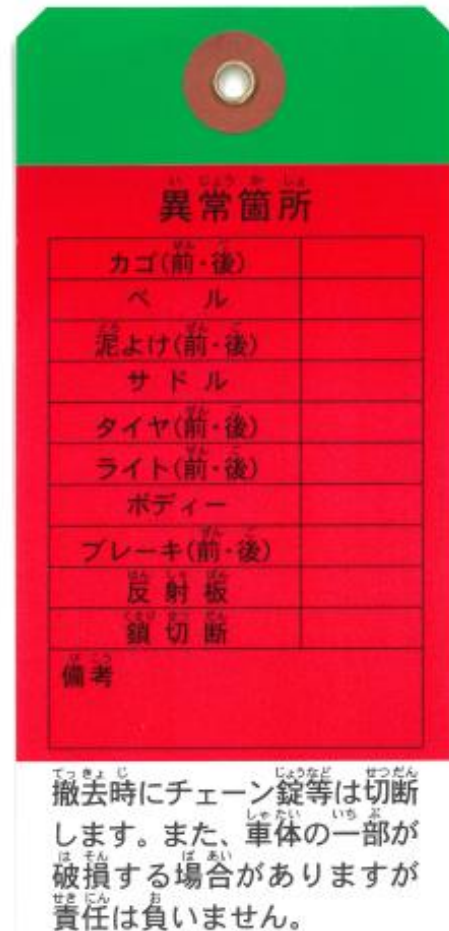 異常箇所
カゴ(前・後)
ベル
泥よけ(前・後)
サドル
タイヤ(前・後)
ライト(前・後)
ボディー
ブレーキ(前・後)
反射板
鎖切断
備考
撤去時にチェーン錠等は切断
します。また、車体の一部が
破損する場合がありますが
責任は負いません。